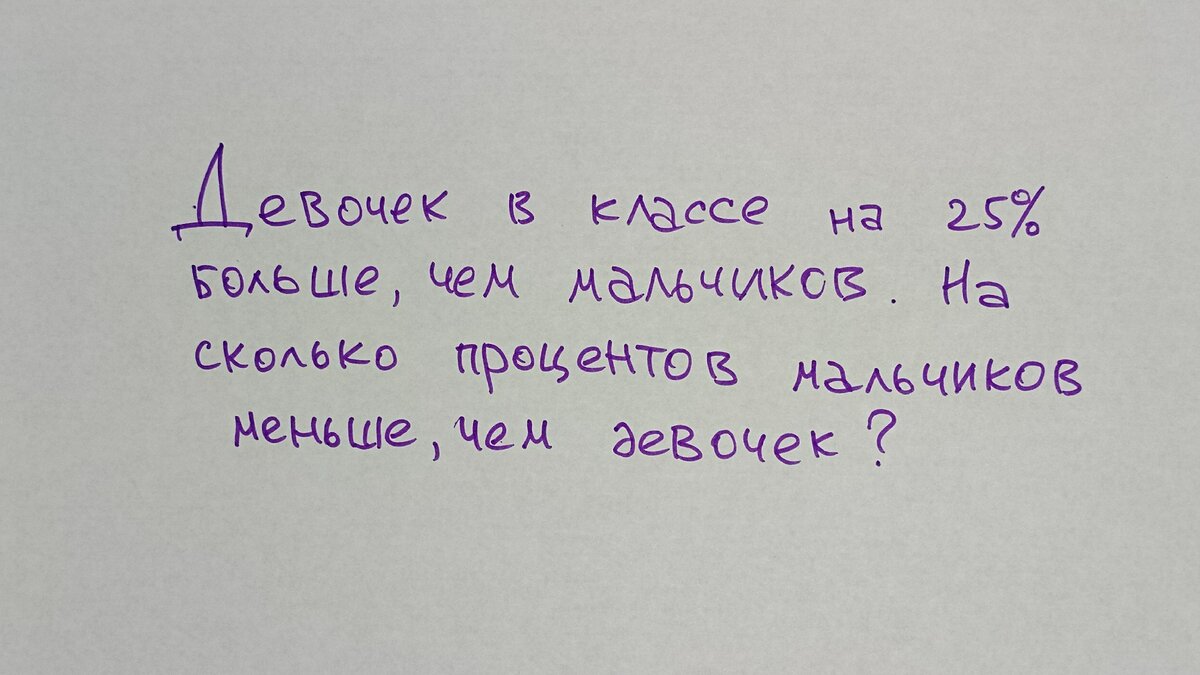 Девочек в классе на 25%
больше, чем мальчиков. На
сколько процентов мальчиков
меньше, чем девочек?